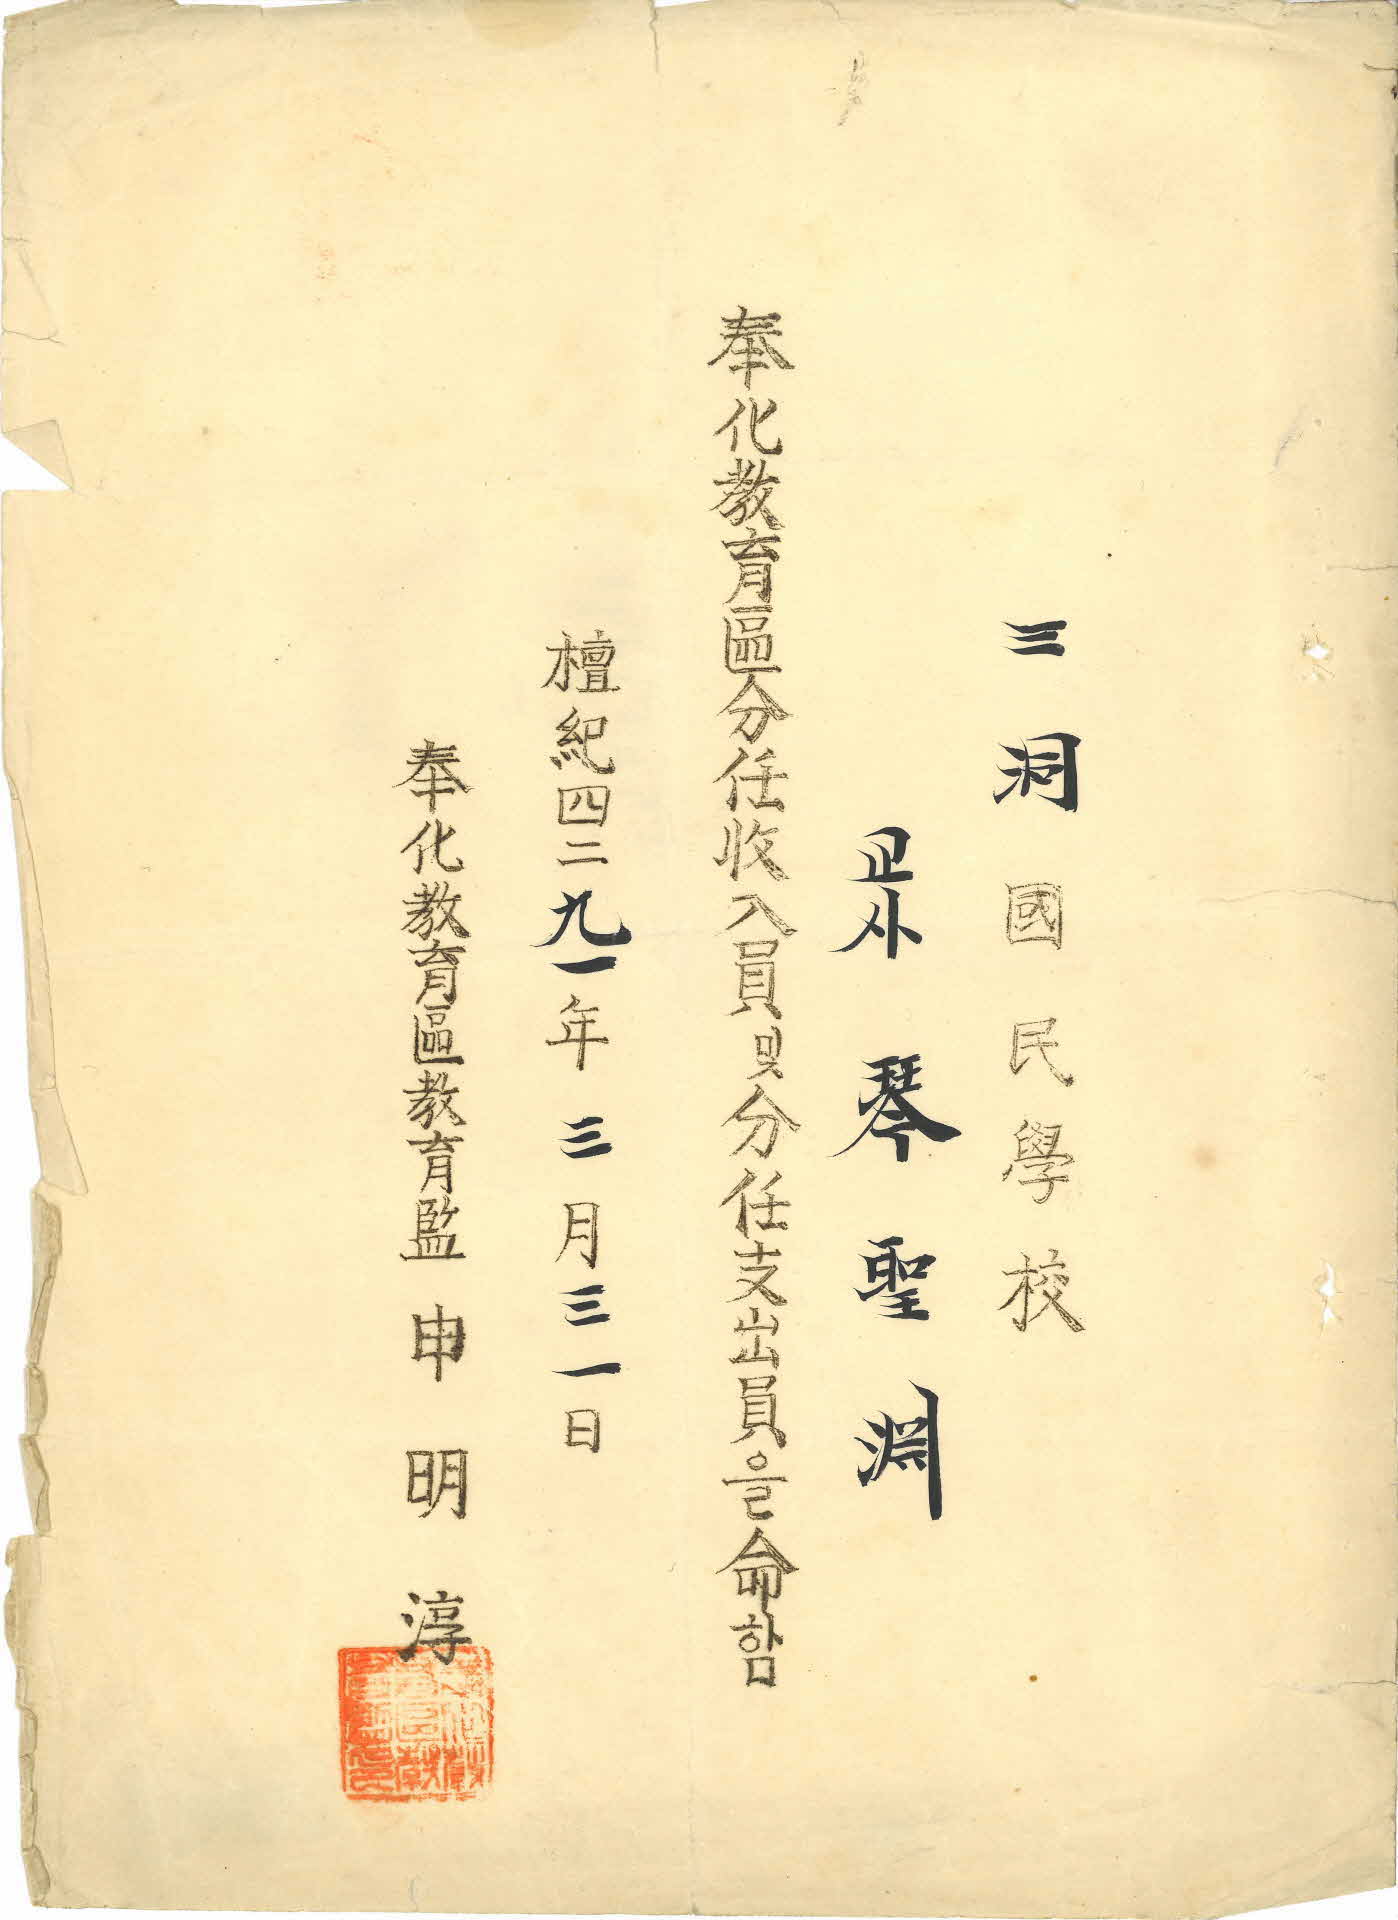 三洞國民學校
교사 琴聖淵
奉化教育區分任收入員및分任支出員을命함
檀紀四二九一年三月三一日
奉化教育區教育監 申明淳